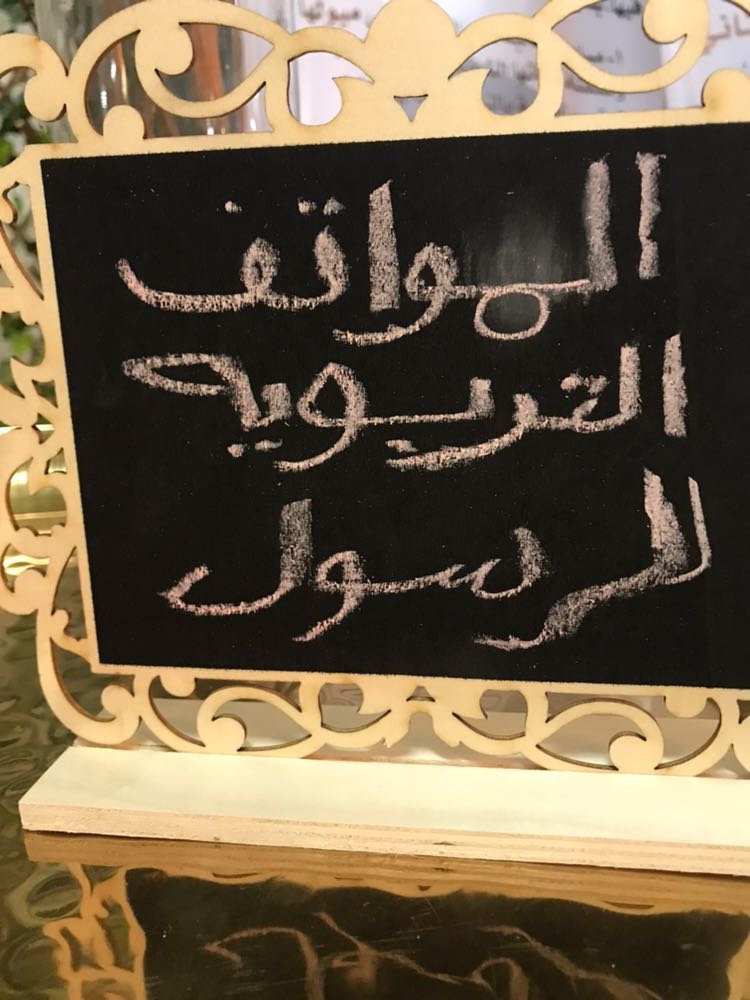 المواقف
التربويه
للرسول